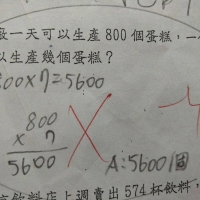 一天可以生產800個蛋糕，一
以生產幾個蛋糕？
800×7=5600
800
× 7
5600
A:5600個
飲料店上週賣出574杯飲料，